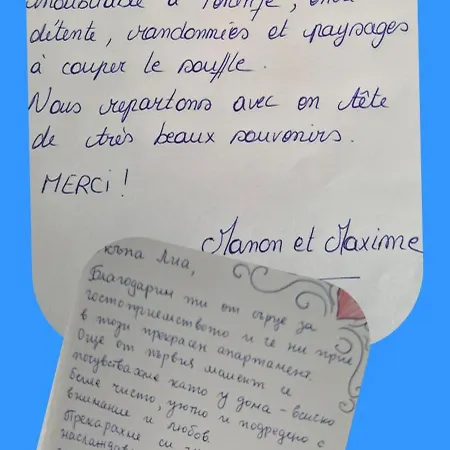 inoubliable à
détente, randonnées et paysages
à couper le souffle.
Nous repartons avec en tête
de très beaux souvenirs.
MERCI !
Manon et Maxime
Лиа,
Благодарим ти от сърце за
гостоприемството и че ни прие
в този прекрасен апартамент.
Още от първия момент се
почувствахме като у дома - всичко
беше чисто, уютно и подредено с
внимание и любов.
Прекарахме си